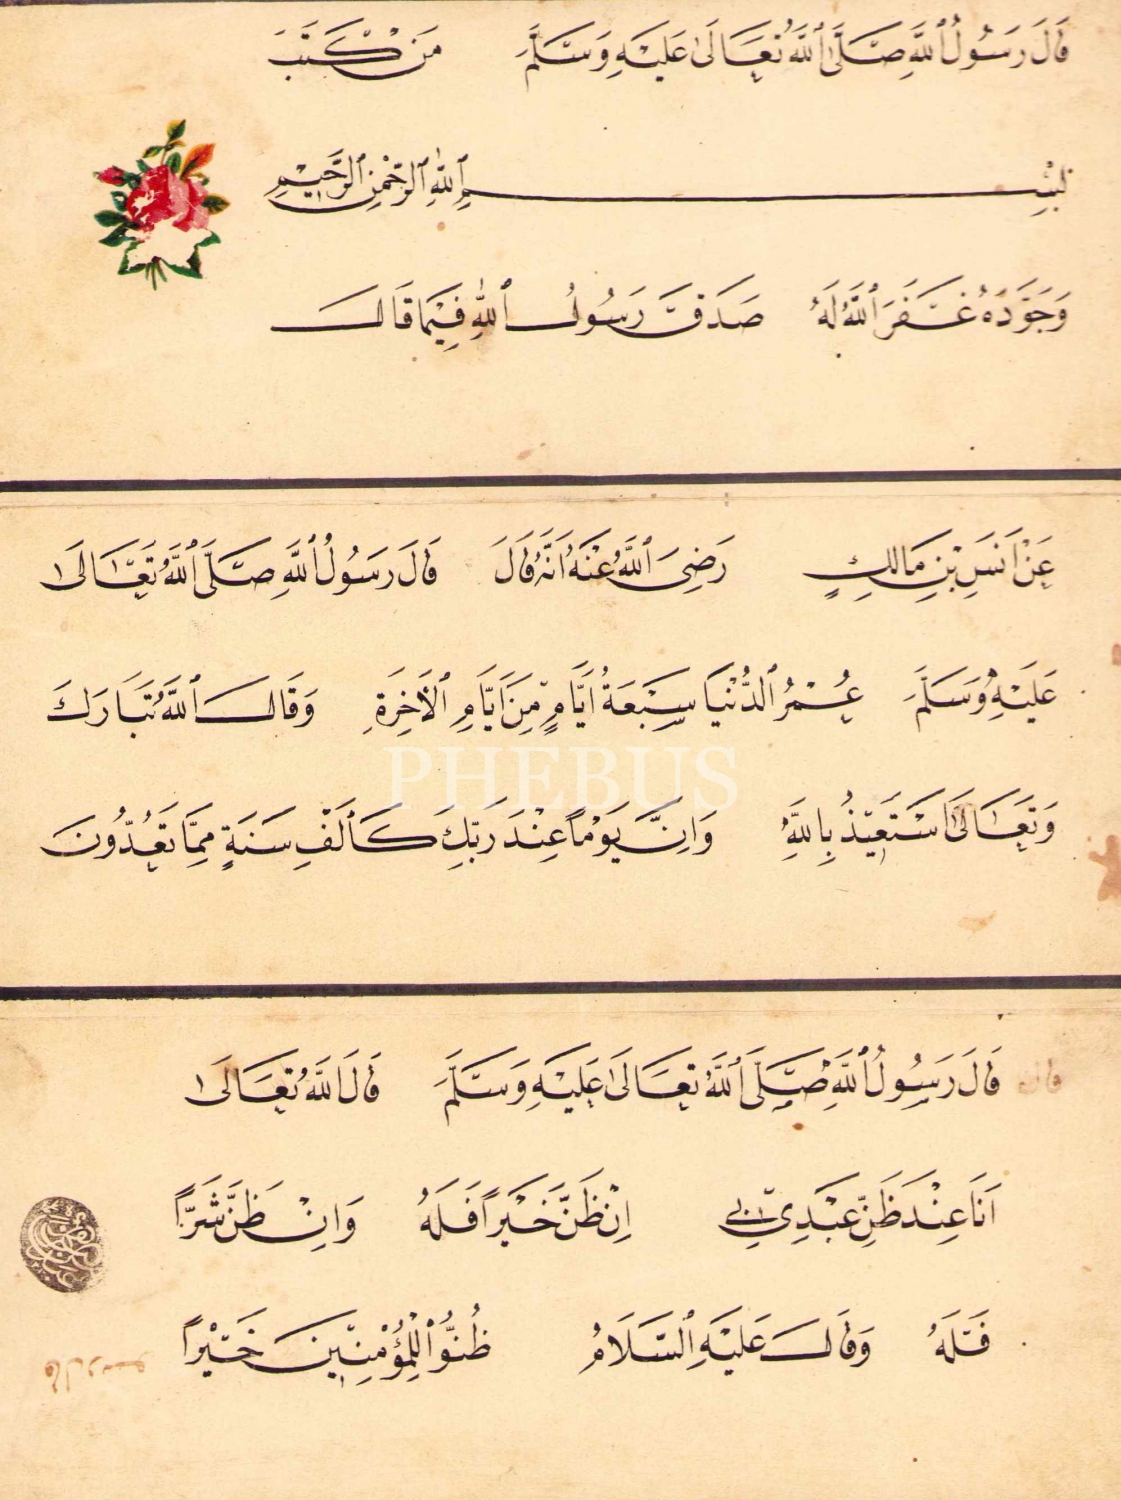 قَالَ رَسُولُ ٱللَّهِ صَلَّى ٱللَّهُ تَعَالَى عَلَيْهِ وَسَلَّمَ مَنْ كَتَبَ
بِسْمِ ٱللَّهِ ٱلرَّحْمٰنِ ٱلرَّحِيمِ
وَجَوَّدَهُ غَفَرَ ٱللَّهُ لَهُ صَدَقَ رَسُولُ ٱللَّهِ فِيمَا قَالَ
عَنْ اَنَسِ بْنِ مَالِكٍ رَضِىَ ٱللَّهُ عَنْهُ اَنَّهُ قَالَ قَالَ رَسُولُ ٱللَّهِ صَلَّى ٱللَّهُ تَعَالَى
عَلَيْهِ وَسَلَّمَ عُمْرُ ٱلدُّنْيَا سَبْعَةُ اَيَّامٍ مِنَ اَيَّامِ ٱلْاَخِرَةِ وَقَالَ ٱللَّهُ تَبَارَكَ
وَتَعَالَى اَسْتَعِيذُ بِاللَّهِ وَاِنَّ يَوْمًا عِنْدَ رَبِّكَ كَاَلْفِ سَنَةٍ مِمَّا تَعُدُّونَ
PHEBUS
قَالَ رَسُولُ ٱللَّهِ صَلَّى ٱللَّهُ تَعَالَى عَلَيْهِ وَسَلَّمَ قَالَ ٱللَّهُ تَعَالَى
اَنَا عِنْدَ ظَنِّ عَبْدِي بِي اِنْ ظَنَّ خَيْرًا فَلَهُ وَاِنْ ظَنَّ شَرًّا
فَلَهُ وَقَالَ عَلَيْهِ ٱلسَّلَامُ ظُنُّوا ٱلْمُؤْمِنِينَ خَيْرًا
قال رسو